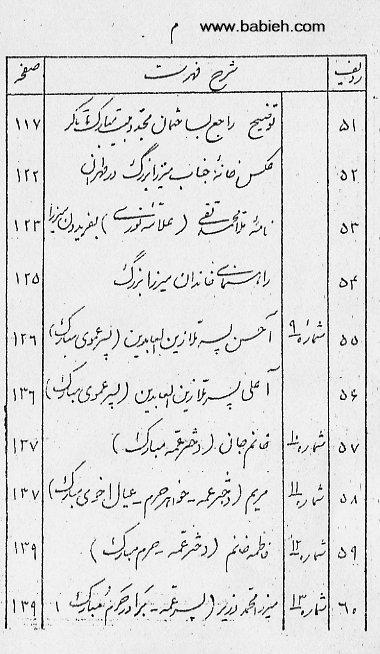 م
www.babieh.com
ردیف شرح فهرست صفحه
۵۱ توضیح راجع بساختمان مجدد بیت مبارک تاکر ۱۱۷
۵۲ عکس خانهٔ جناب میرزا بزرگ در طهران ۱۲۲
۵۳ نامهٔ ملا محمد تقی (علامه نوری) بفریدون میرزا ۱۲۳
۵۴ راهنمای خاندان میرزا بزرگ ۱۲۵
۵۵ شمارهٔ ۹ آ حسن پسر ملا زین العابدین (پسر عموی مبارک) ۱۲۶
۵۶ آ علی پسر ملا زین العابدین (پسر عموی مبارک) ۱۳۶
۵۷ شماره ۱۰ خانم جان (دختر عمه مبارک) ۱۳۷
۵۸ شماره ۱۱ مریم (دختر عمه - خواهر حرم - عیال اخوی مبارک) ۱۳۷
۵۹ شماره ۱۲ فاطمه خانم (دختر عمه - حرم مبارک) ۱۳۹
۶۰ شماره ۱۳ میرزا محمد وزیر (پسر عمه - برادر حرم مبارک) ۱۳۹